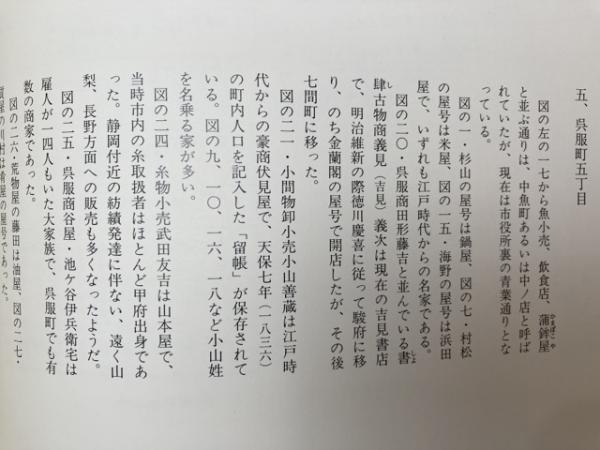 五、呉服町五丁目
図の左の一七から魚小売、飲食店、蒲鉾屋
かまぼこや
と並ぶ通りは、中魚町あるいは中ノ店と呼ば
れていたが、現在は市役所裏の青葉通りとな
っている。
図の一・杉山の屋号は鍋屋、図の七・村松
の屋号は米屋、図の一五・海野の屋号は浜田
屋で、いずれも江戸時代からの名家である。
図の二〇・呉服商田形藤吉と並んでいる書
しょ
肆古物商義見（吉見）義次は現在の吉見書店
し
で、明治維新の際徳川慶喜に従って駿府に移
り、のち金蘭閣の屋号で開店したが、その後
七間町に移った。
図の二一・小間物卸小売小山善蔵は江戸時
代からの豪商伏見屋で、天保七年（一八三六）
の町内人口を記入した「留帳」が保存されて
いる。図の九、一〇、一六、一八など小山姓
を名乗る家が多い。
図の二四・糸物小売武田友吉は山本屋で、
当時市内の糸取扱者はほとんど甲府出身であ
った。静岡付近の紡績発達に伴ない、遠く山
梨、長野方面への販売も多くなったようだ。
図の二五・呉服商谷屋・池ケ谷伊兵衛宅は
雇人が一四人もいた大家族で、呉服町でも有
数の商家であった。
図の二六・荒物屋の藤田は油屋、図の二七・
屋の川村は

の屋号であった。